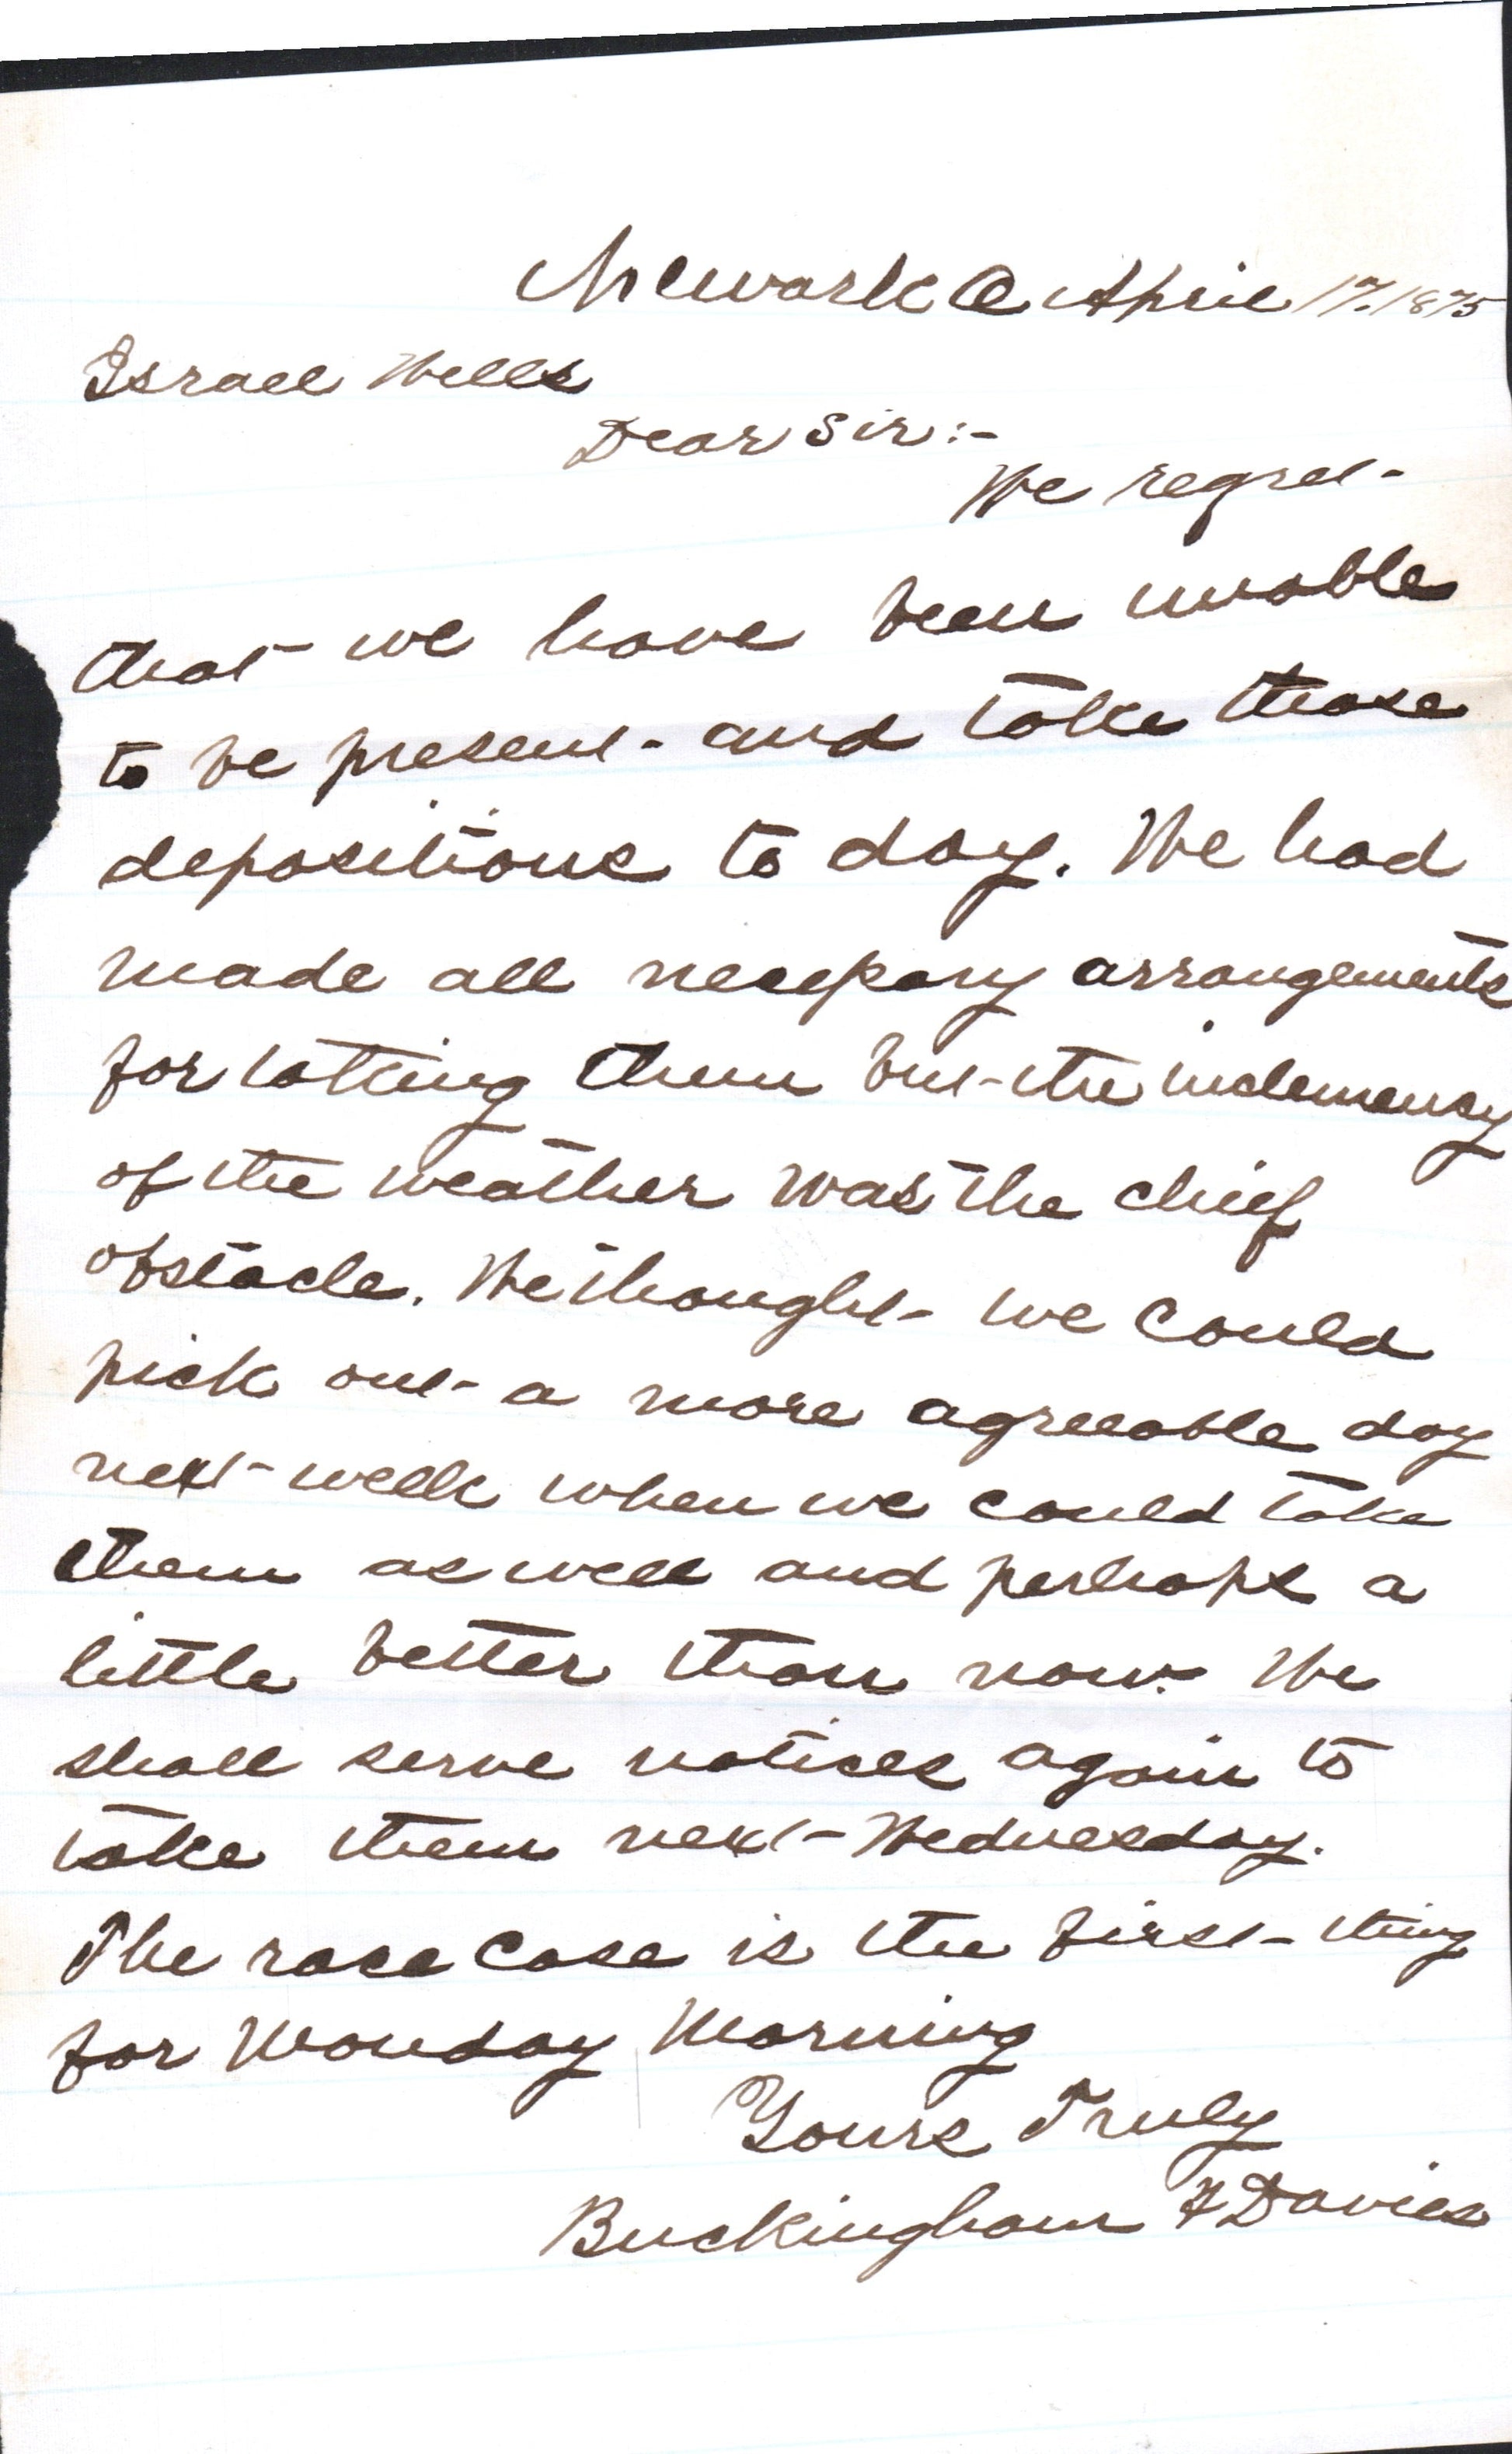 Newark O April 17. 1875
Israel Wells
Dear Sir:-
We regret
that we have been unable
to be present and take those
depositions to day. We had
made all necessary arrangements
for taking them but the inclemency
of the weather was the chief
obstacle. We thought we could
pick out a more agreeable day
next week when we could take
them as well and perhaps a
little better than now. We
shall serve notices again to
take them next Wednesday.
The race case is the first thing
for Monday Morning
Yours Truly
Buckingham & Davies